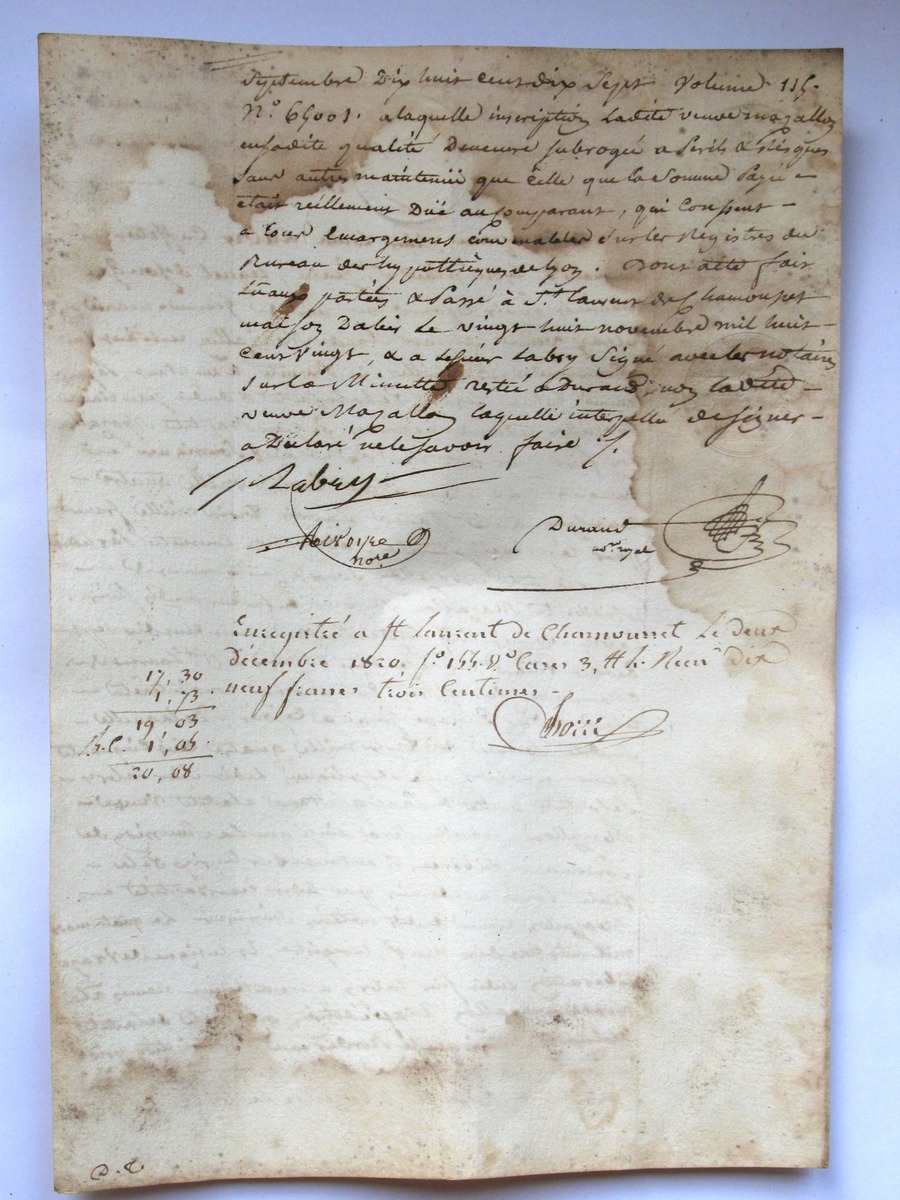 Septembre Dix huit cent dix Sept Volume 115.
N.º 65001. a laquelle inscription Ladite veuve Mazallon
ensadite qualité Demeure subrogée a Perils & risques
sans autre maintenüe que Celle que la Somme Payée
etait réellement Düe au Comparant, qui Consent
a tous Emargemens sur les Registres du
Bureau des hypotheques de Lyon. Dont acte fait
& Passé à St. Laurent de Chamousset
maison Le vingt huit novembre mil huit
Cent vingt, & a Le Sieur Labry Signé avec les notaires
sur la Minutte restée a Durand, non Ladite
veuve Mazallon laquelle interpellée de signer
a Declaré ne le Savoir faire ./.
Labry
nore
Durand
nre royal
Enregistré a St Laurent de Chamousset Le deux
décembre 1820. fº 155. Vº Cases 3, Reçu dix
neuf francs trois Centimes
17, 30
1, 73
19 03
1, 05
20, 08